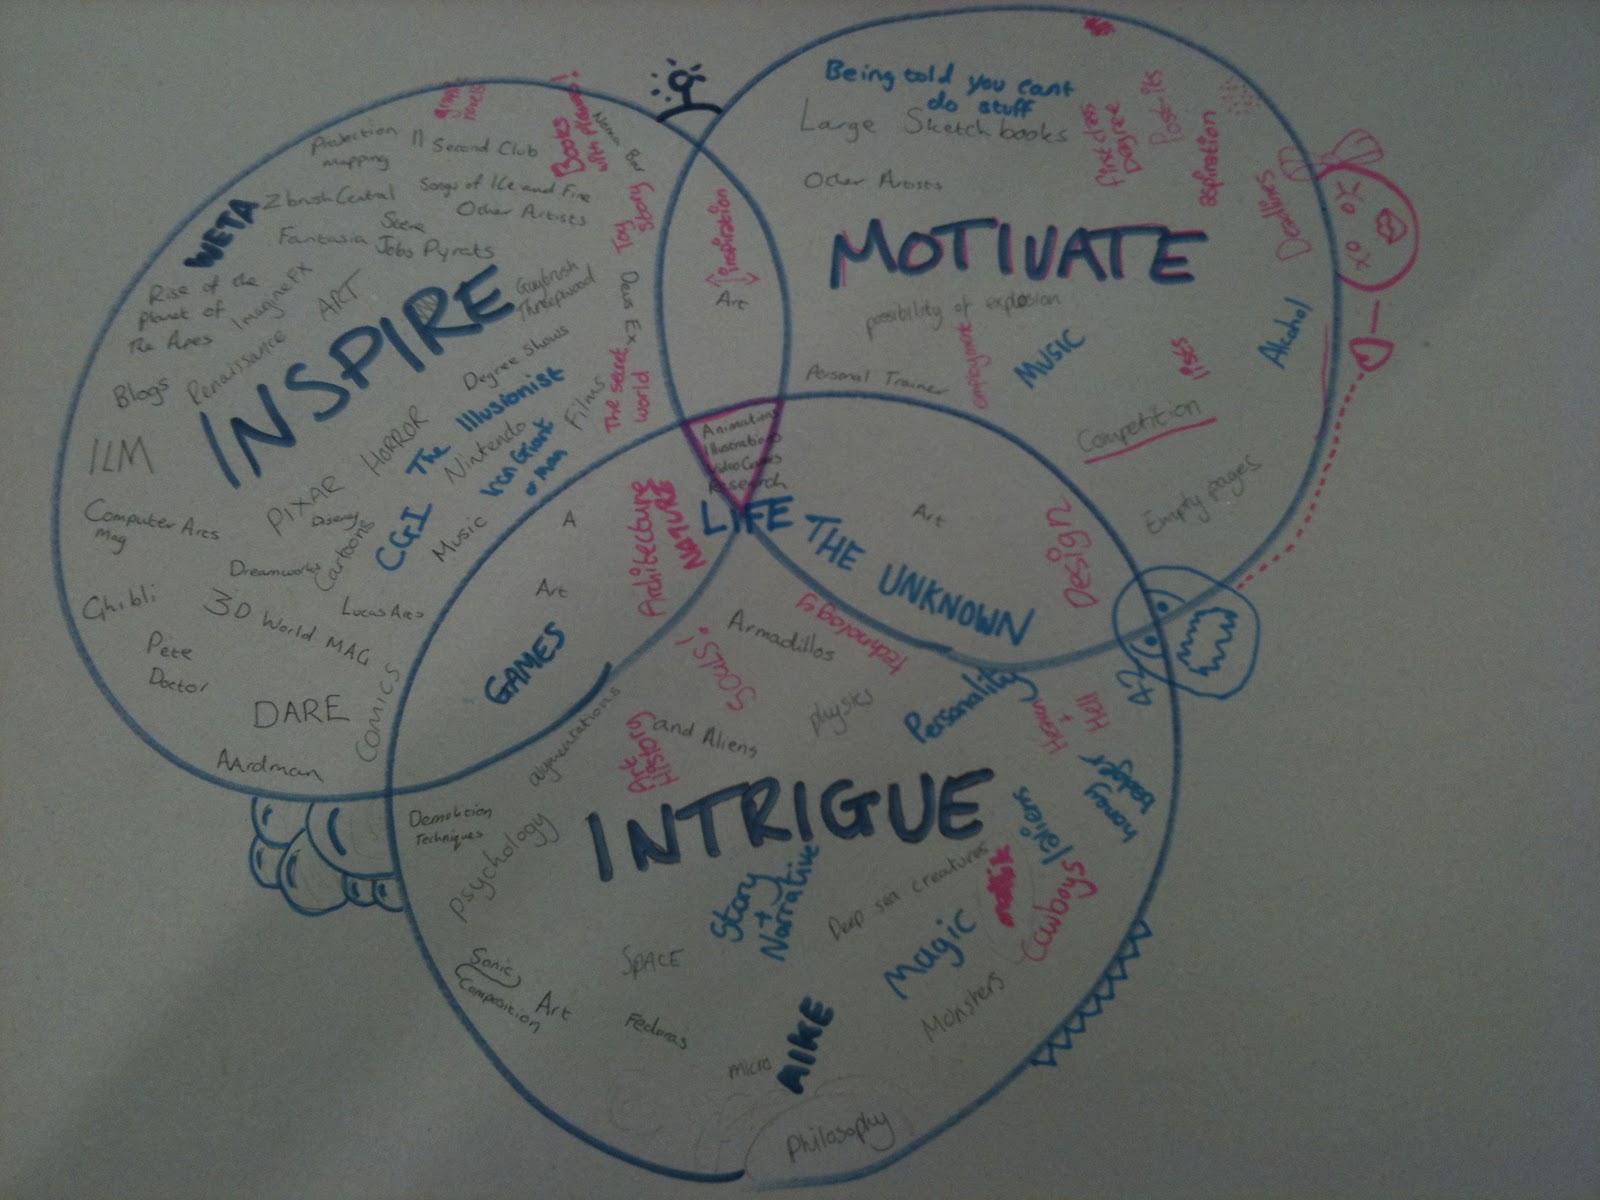 Projection
mapping
11 Second Club
Books
with pictures!
Nama Bar
WETA
Zbrush Central
Songs of Ice and Fire
Other Artists
Toy
Story
Fantasia
Jobs Pyrats
Rise of the
Planet of
The Apes
ImagineFX
ART
Guybrush
Threepwood
Deus Ex
INSPIRE
Blogs
Renaissance
Degree Shows
The secret
world
ILM
HORROR
The Illusionist
Nintendo
Films
Iron Giant
or man
PIXAR
Disney
CGI
Music
Cartoons
Computer Arts
Mag
Dreamworks
Ghibli
3D World MAG
Lucas Arts
Pete
Doctor
DARE
Comics
AArdman
Inspiration
Art
Being told you cant
do stuff
Large Sketchbooks
First class
Degree
Post-its
aspiration
Other Artists
Deadlines
MOTIVATE
possibility of explosion
employment
Music
lists
Alcohol
Personal Trainer
Competition
Empty pages
Animations
Illustrations
Video Games
Research
LIFE
THE UNKNOWN
Art
Design
A
Architecture
NATURE
Art
GAMES
Armadillos
technology
SOULS!
and Aliens
physics
Personality
Heaven
+
Hell
42
honey
badger
augmentations
Art
History
INTRIGUE
Demolition
Techniques
Psychology
Story
+
Narrative
Deep sea creatures
Cowboys
/aliens
Magic
Monsters
SPACE
Sonic
Composition
Art
Fedoras
micro
AIKE
Philosophy